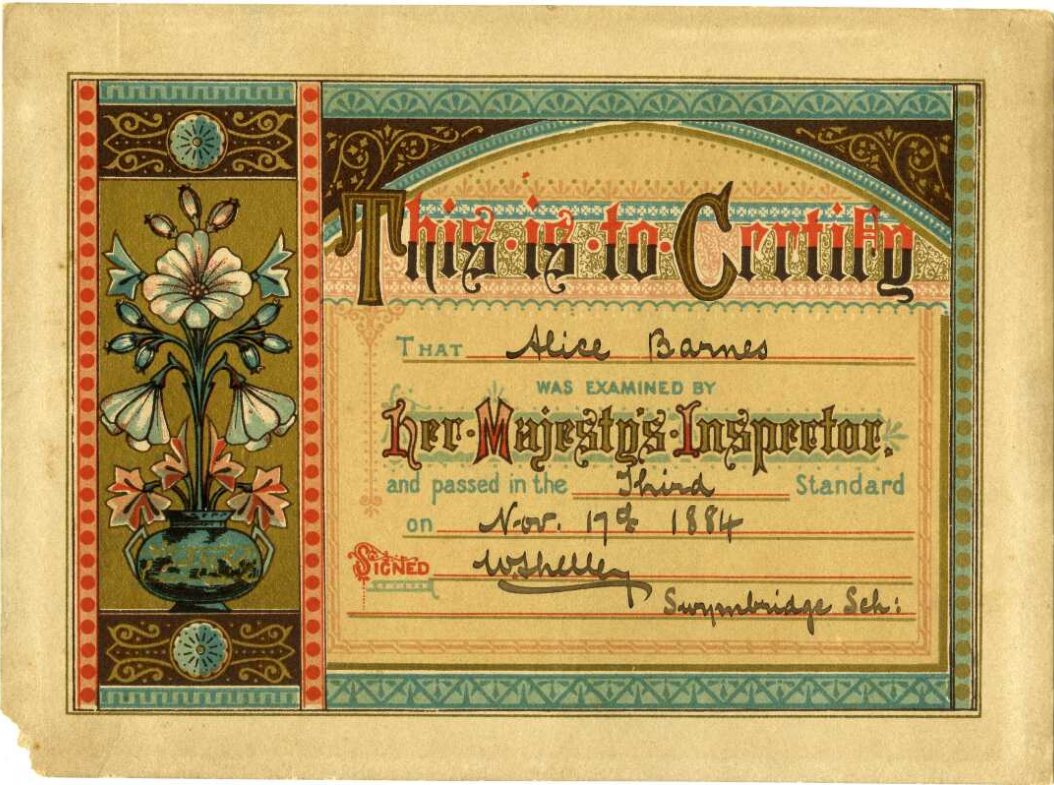 This · is · to · Certify
THAT Alice Barnes
WAS EXAMINED BY
Her · Majesty's · Inspector.
and passed in the Third Standard
on Nov. 17th 1884
SIGNED W Shelley
Swymbridge Sch: